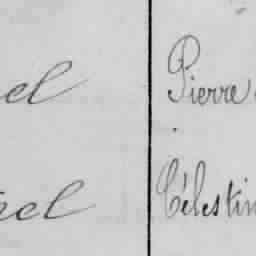 el Pierre
el Célestin